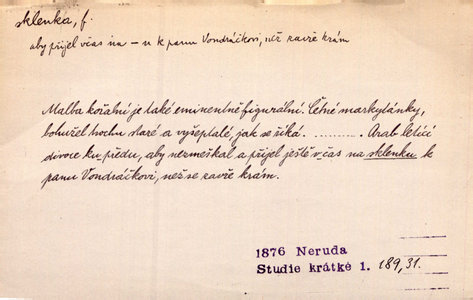 sklenka, f.
aby přijel včas na – u k panu Vondráčkovi, než zavře krám
Malba kořalní je také eminentně figurální. Četné markytánky,
bohužel trochu staré a vyšeptalé, jak se říká. .......... Arab letící
divoce ku předu, aby nezmeškal a přijel ještě včas na sklenku k
panu Vondráčkovi, než se zavře krám.
1876 Neruda
Studie krátké 1. 189,31.